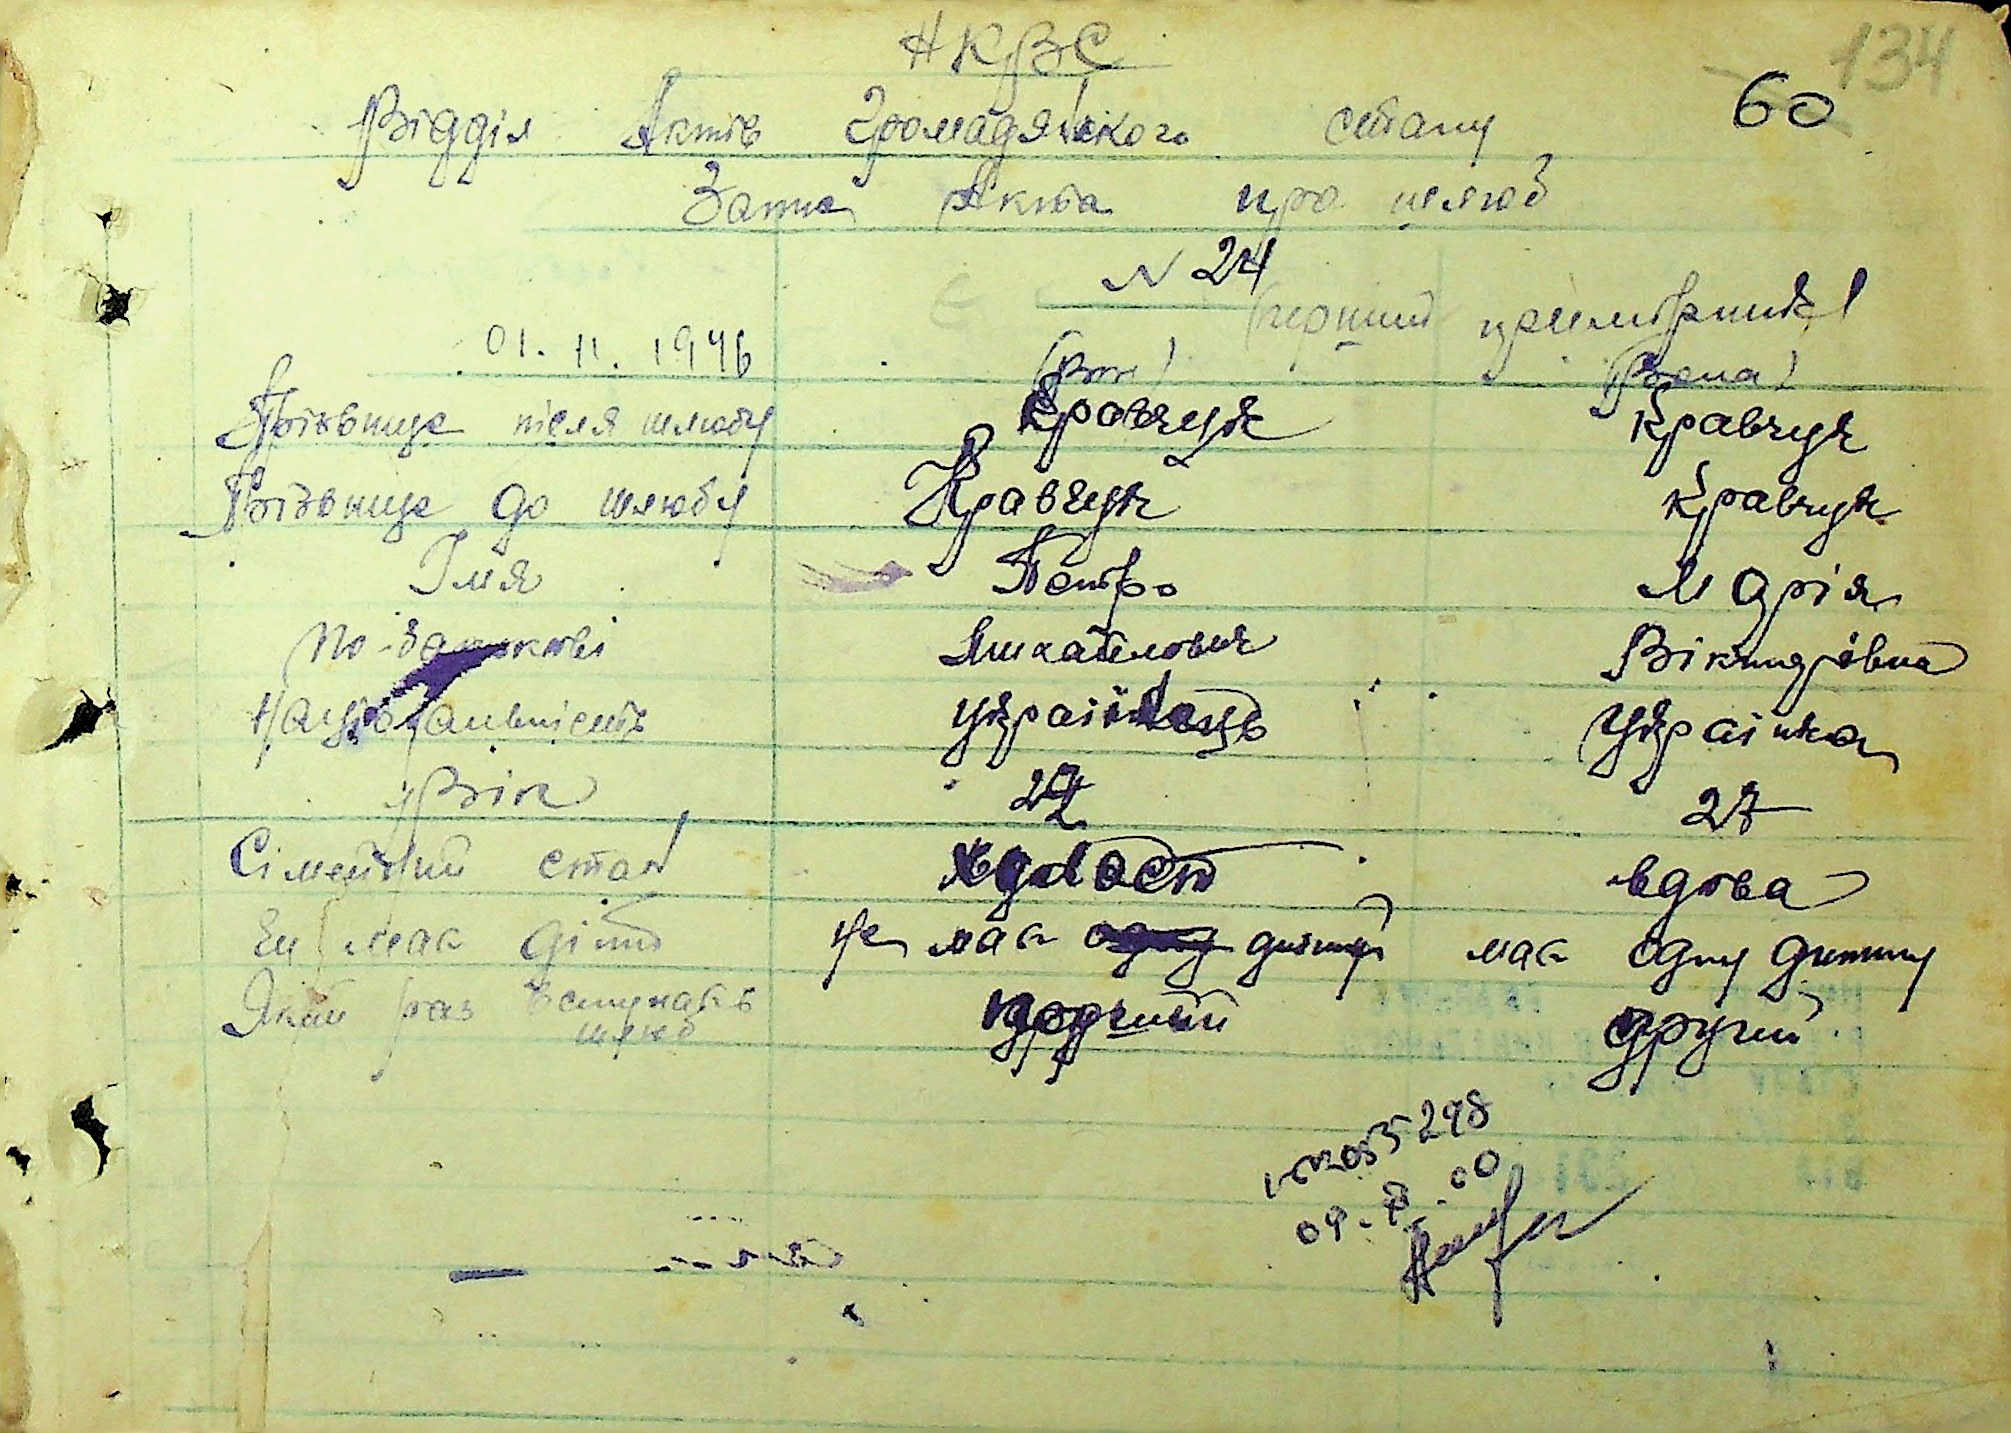 НКВС
134
60
Відділ Актів Громадянського стану
Запис Акта про шлюб
N 24
(перший примірник)
01. 11. 1946 (Він) (Вона)
Прізвище після шлюбу Кравчук Кравчук
Прізвище до шлюбу Кравчук Кравчук
Імя Петро Марія
По-батькові Михайлович
Національність Українець Українка
Вік 27
Сімейний стан вдова
Чи має діти Не має дитину має одну дитину
Який раз вступають другий
шлюб
09